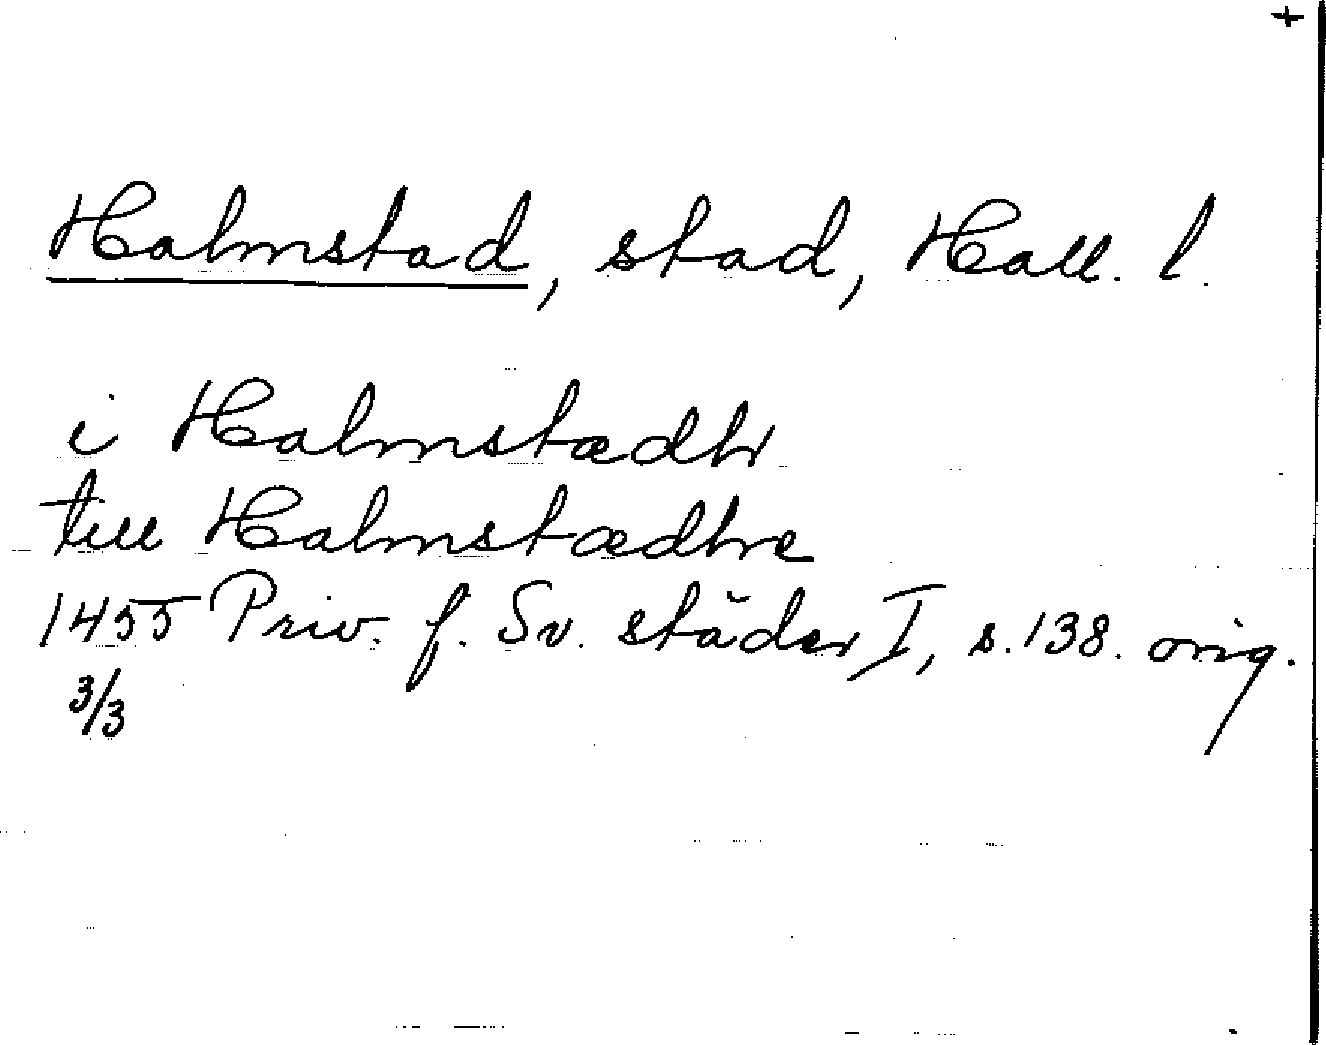 +
Halmstad, stad, Hall. l.
i Halmstædhr
till Halmstædhre
1455 Priv. f. Sv. städer I, s. 138. orig.
3/3